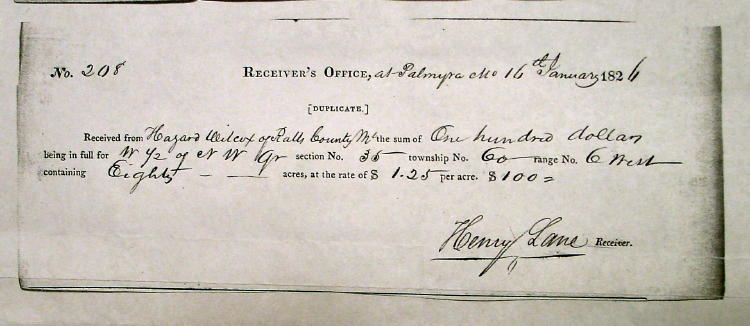 No. 208 RECEIVER'S OFFICE, at Palmyra Mo 16th January 1826
[DUPLICATE.]
Received from Hazard Wilcox of Ralls County Mo the sum of One hundred dollars
being in full for W 1/2 of N W Qr section No. 35 township No. 60 range No. 6 West
containing Eighty acres, at the rate of $ 1.25 per acre. $100=
Henry Lane Receiver.